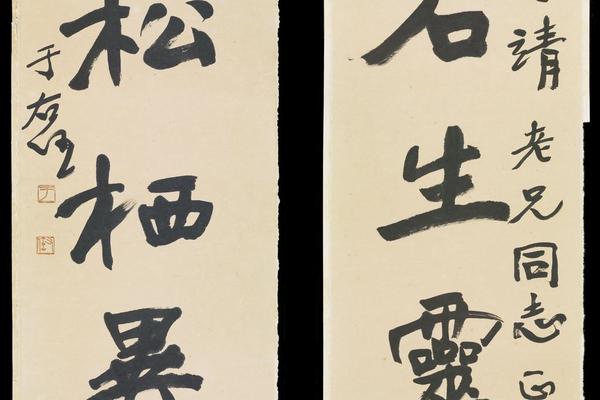 靖老兄同志正
石生靈
松栖異
于右任